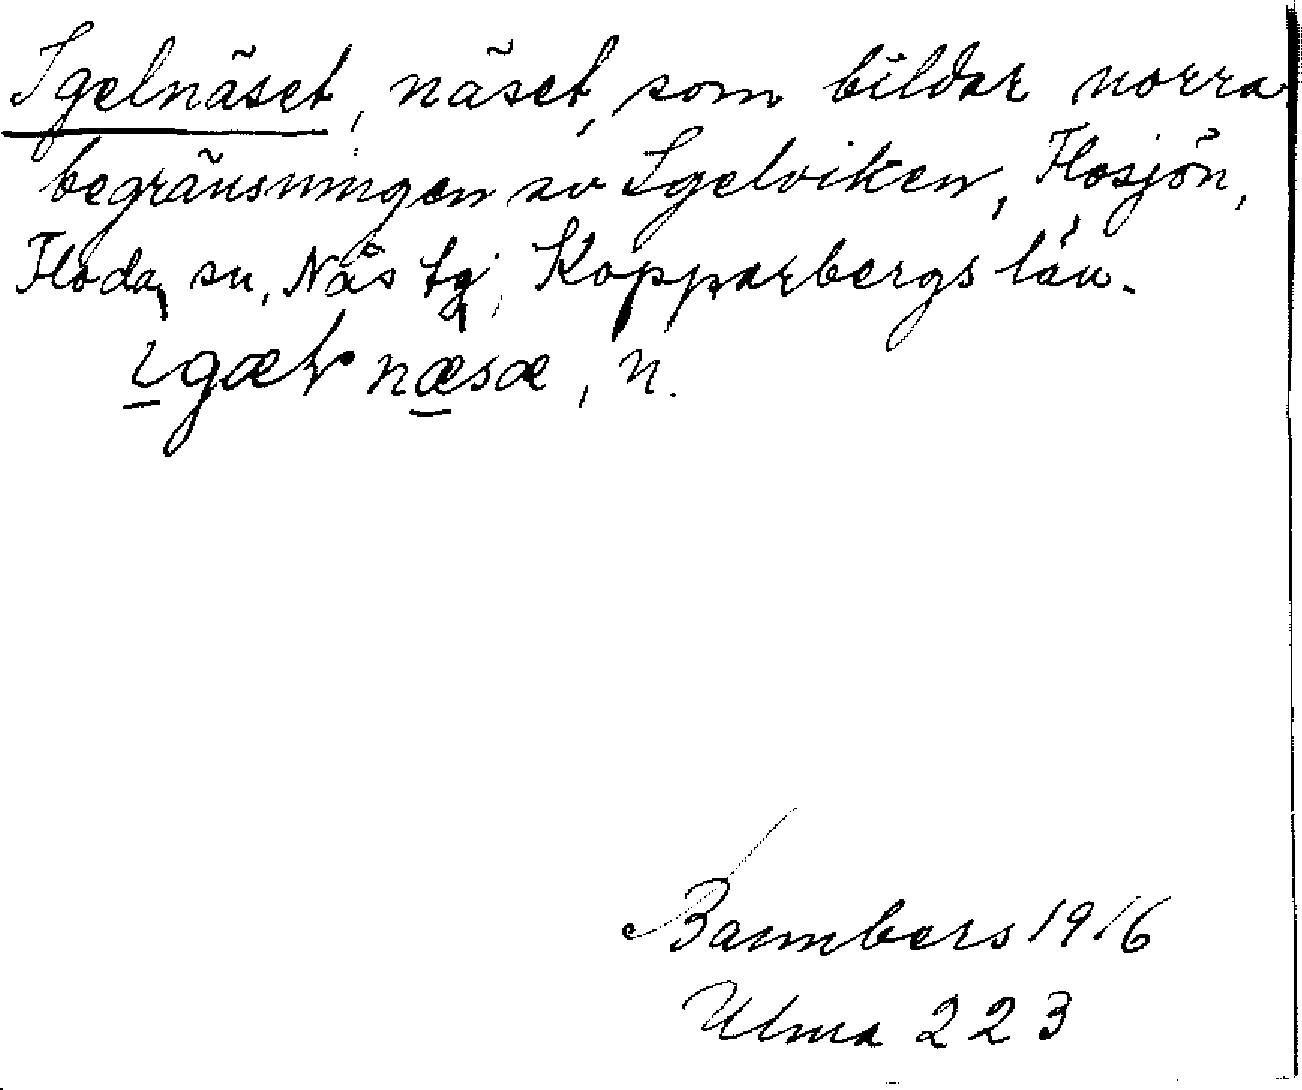 Igelnäset, näset, som bildar norra
begränsningen av Igelviken, Flosjön,
Floda sn, Nås tg, Kopparbergs län.
igæl næsæ, n.
Bannbers 1916
Ulma 223